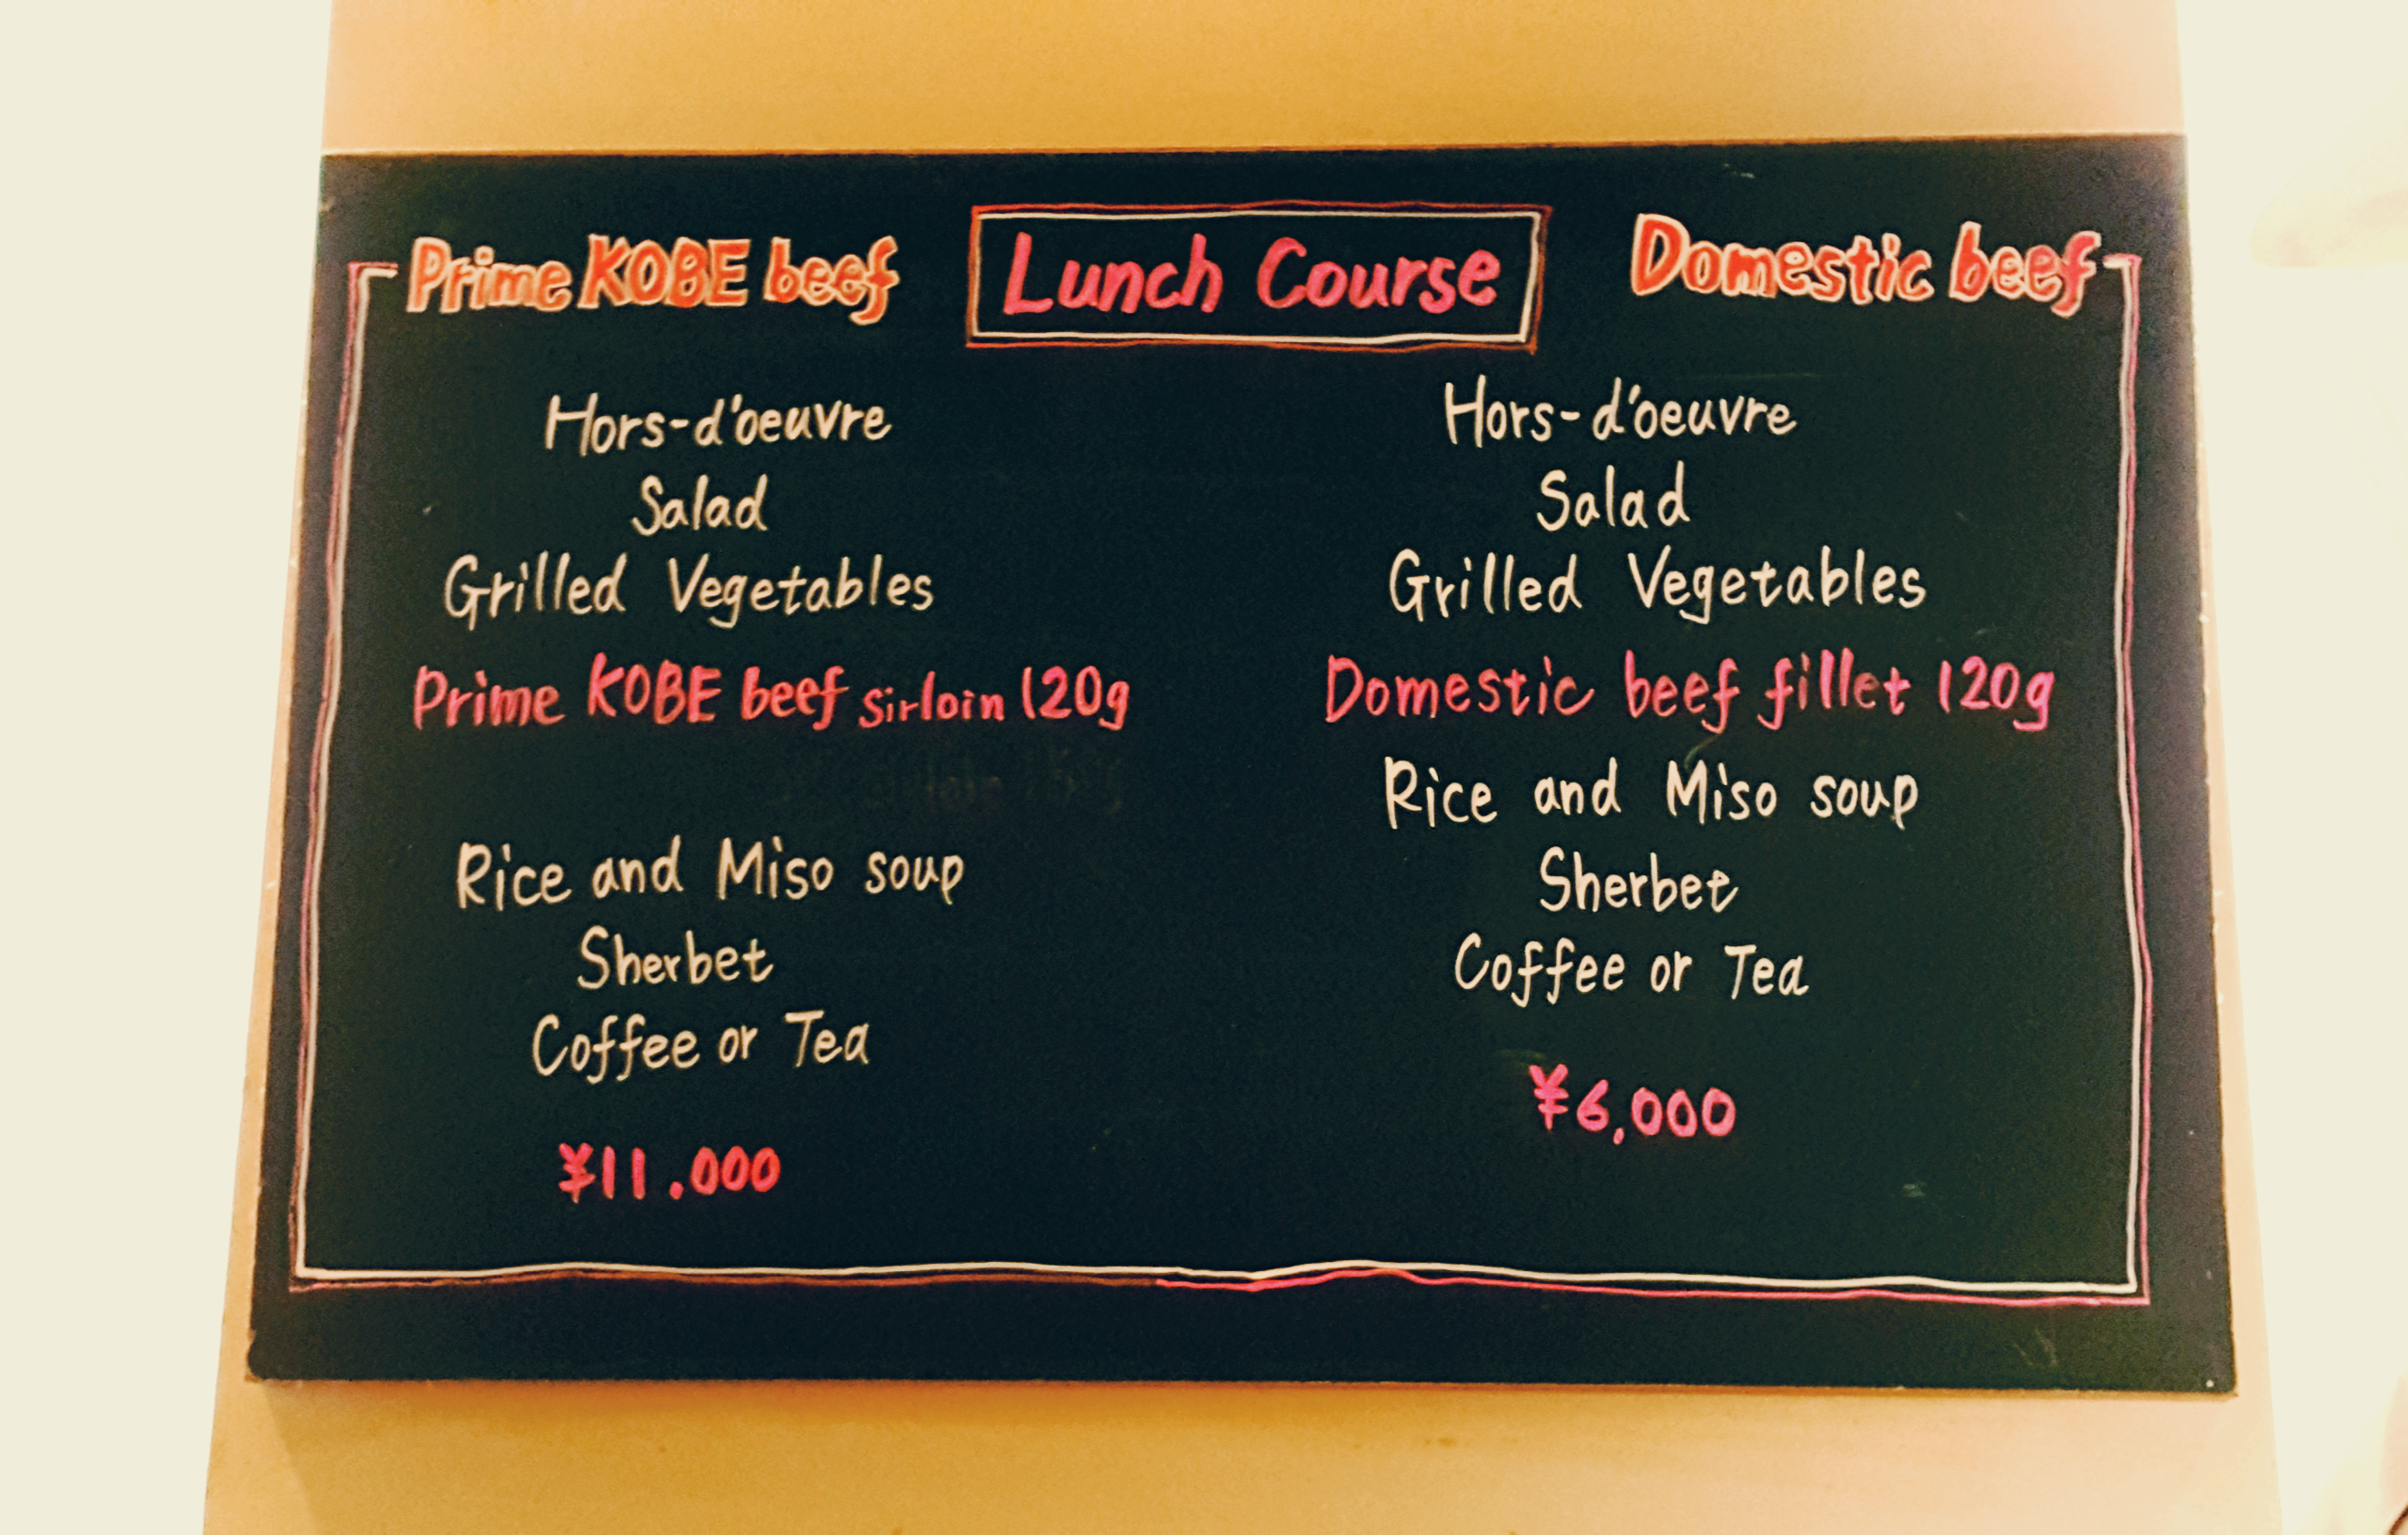 Lunch Course
Prime KOBE beef
Hors-d'oeuvre
Salad
Grilled Vegetables
Prime KOBE beef sirloin 120g
Rice and Miso soup
Sherbet
Coffee or Tea
¥11.000
Domestic beef
Hors-d'oeuvre
Salad
Grilled Vegetables
Domestic beef fillet 120g
Rice and Miso soup
Sherbet
Coffee or Tea
¥6,000